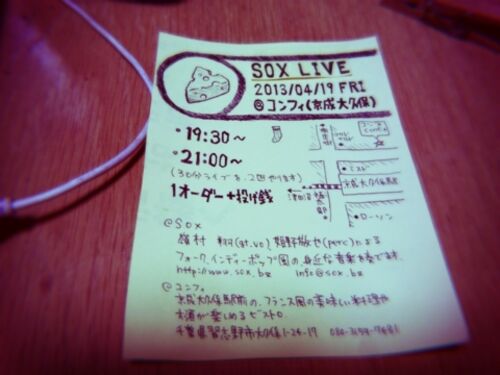 SOX LIVE
2013/04/19 FRI
@コンフィ(京成大久保)
・19:30〜
・21:00〜
(30分ライブを、2回やります)
1オーダー+投げ銭
ミスド
京成大久保駅
ローソン
@SOX
フォーク、インディーポップ風の、身近な音楽を奏でます。
http://www.sox.bz info@sox.bz
@コンフィ
京成大久保駅前の、フランス風の美味しい料理や
お酒が楽しめるビストロ
千葉県習志野市大久保1-24-17